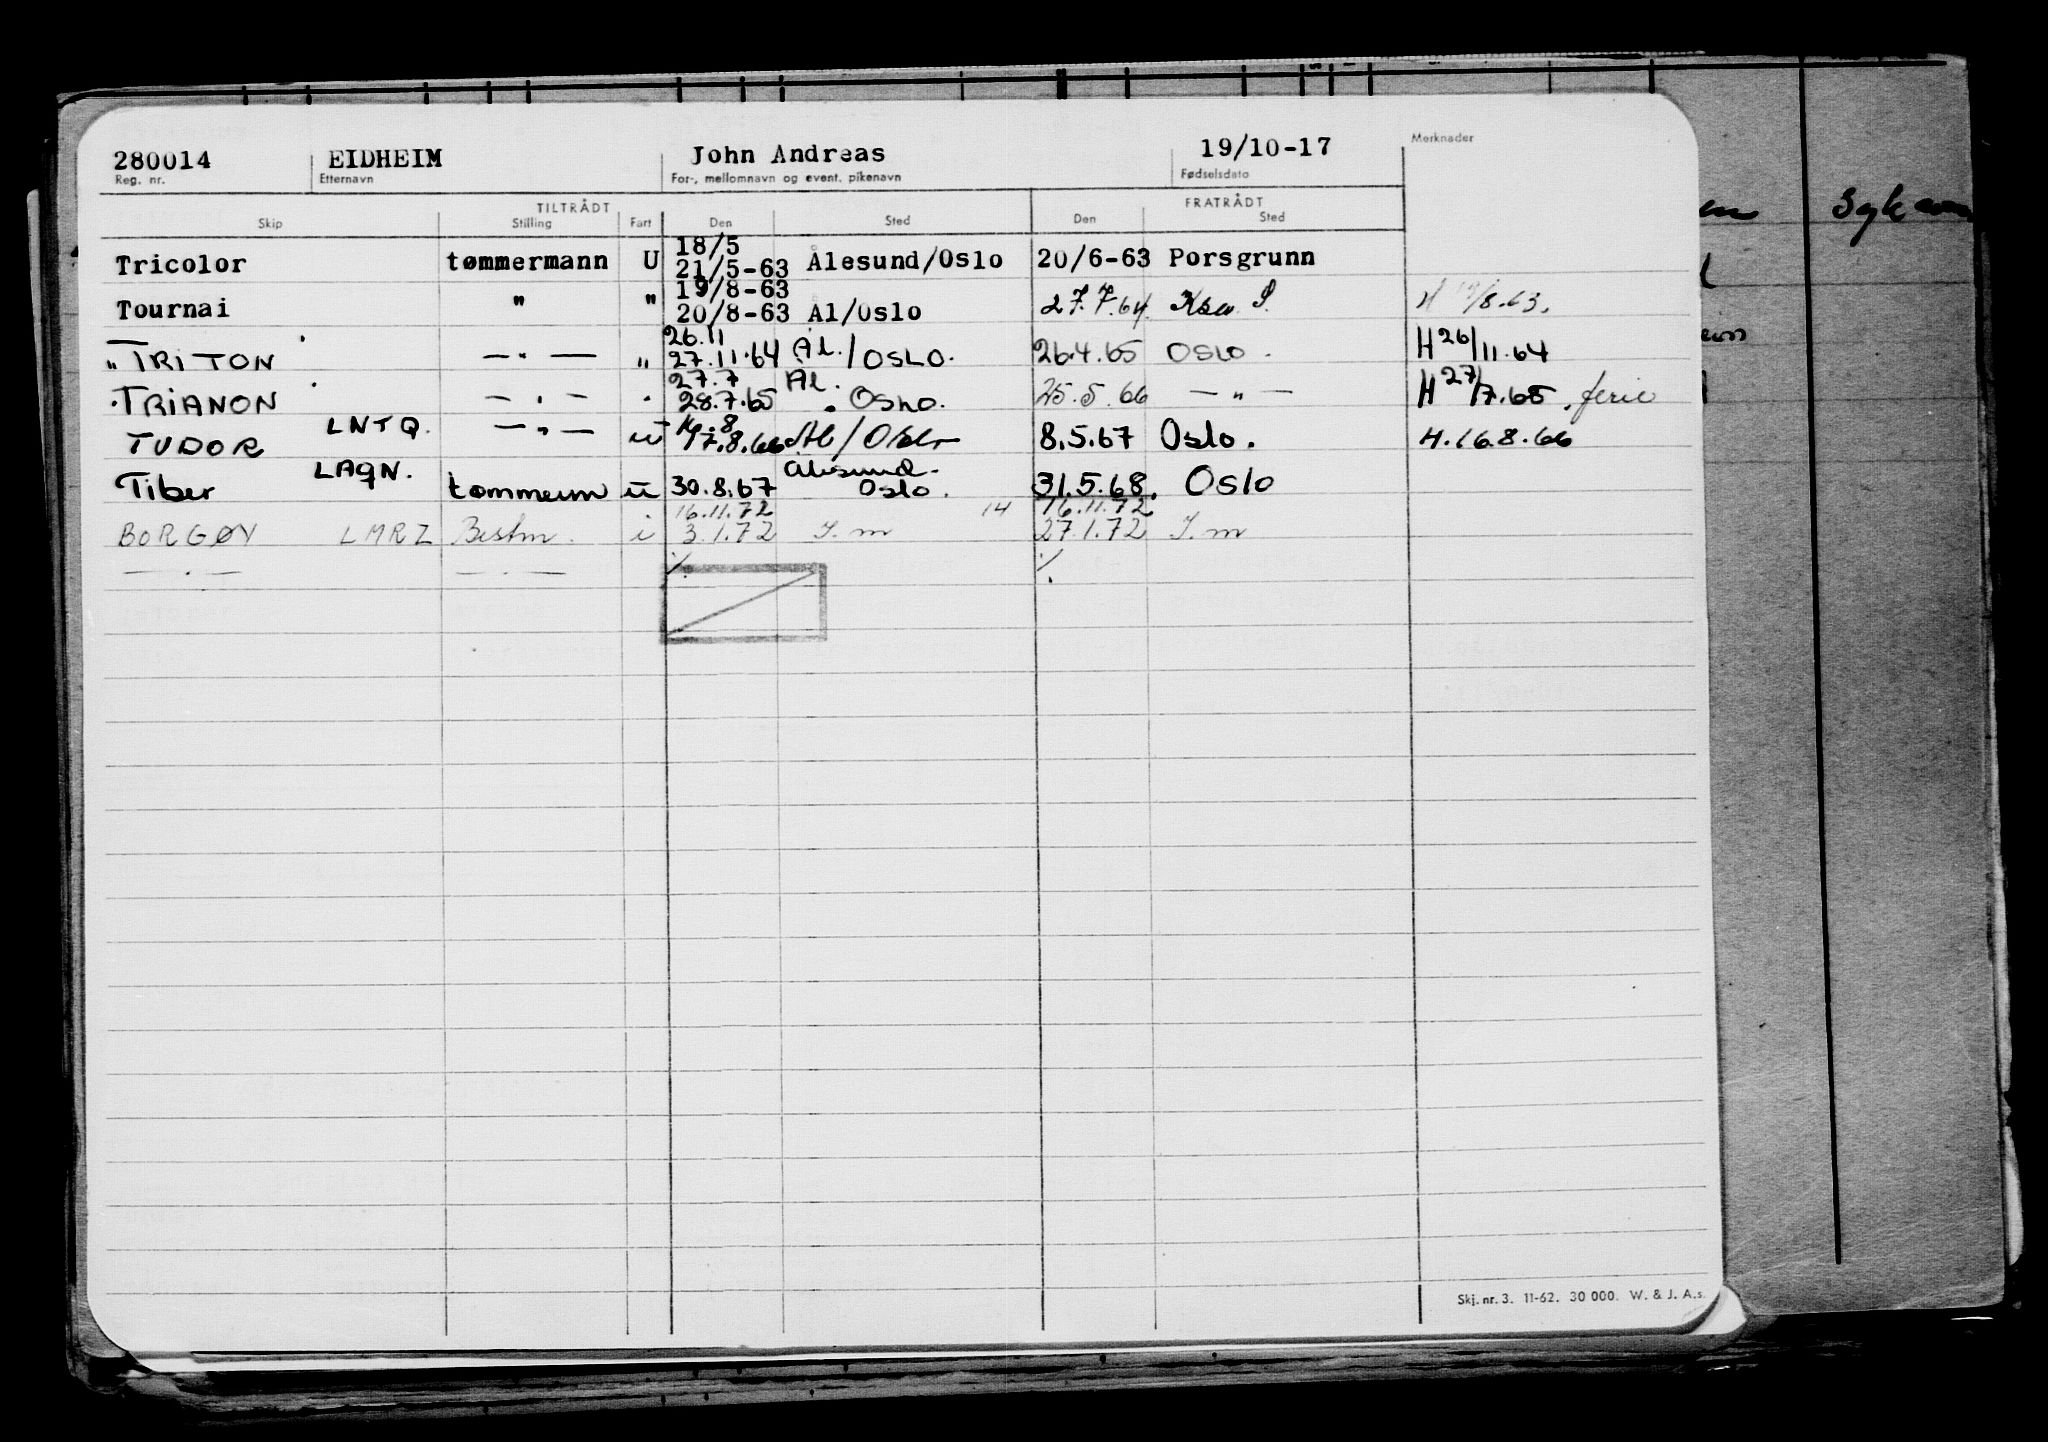 280014 EIDHEIM John Andreas 19/10-17 Merknader
Reg. nr. Etternavn For-, mellomnavn og event. pikenavn Fødselsdato
TILTRÅDT FRATRÅDT
Skip Stilling Fart Den Sted Den Sted
18/5
Tricolor tømmermann U 21/5-63 Ålesund/Oslo 20/6-63 Porsgrunn
19/8-63
Tournai " " 20/8-63 Ål/Oslo 27.7.64. H 19/8.63.
26.11
" TRITON — " — " 27.11.64 Ål./OSLO. 26.4.65 OSLO. H 26/11.64
27.7 Ål.
TRIANON — " — " 28.7.65 " OSLO. 25.5.66 — " — H 27/7.65, ferie
16.8
TUDOR LNTQ. — " — u 17.8.66 Ål/Oslo 8.5.67 Oslo. H.16.8.66
Ålesund-
Tiber LAGN. tømmerm u 30.8.67 Oslo. 31.5.68. Oslo
16.11.72 14 16.11.72
BORGØY LMRZ Bestm. i 3.1.72 I.m 27.1.72 I.m
— " — — " — % %
Skj. nr. 3. 11-62. 30 000. W. & J. A.s.
en Sykdom